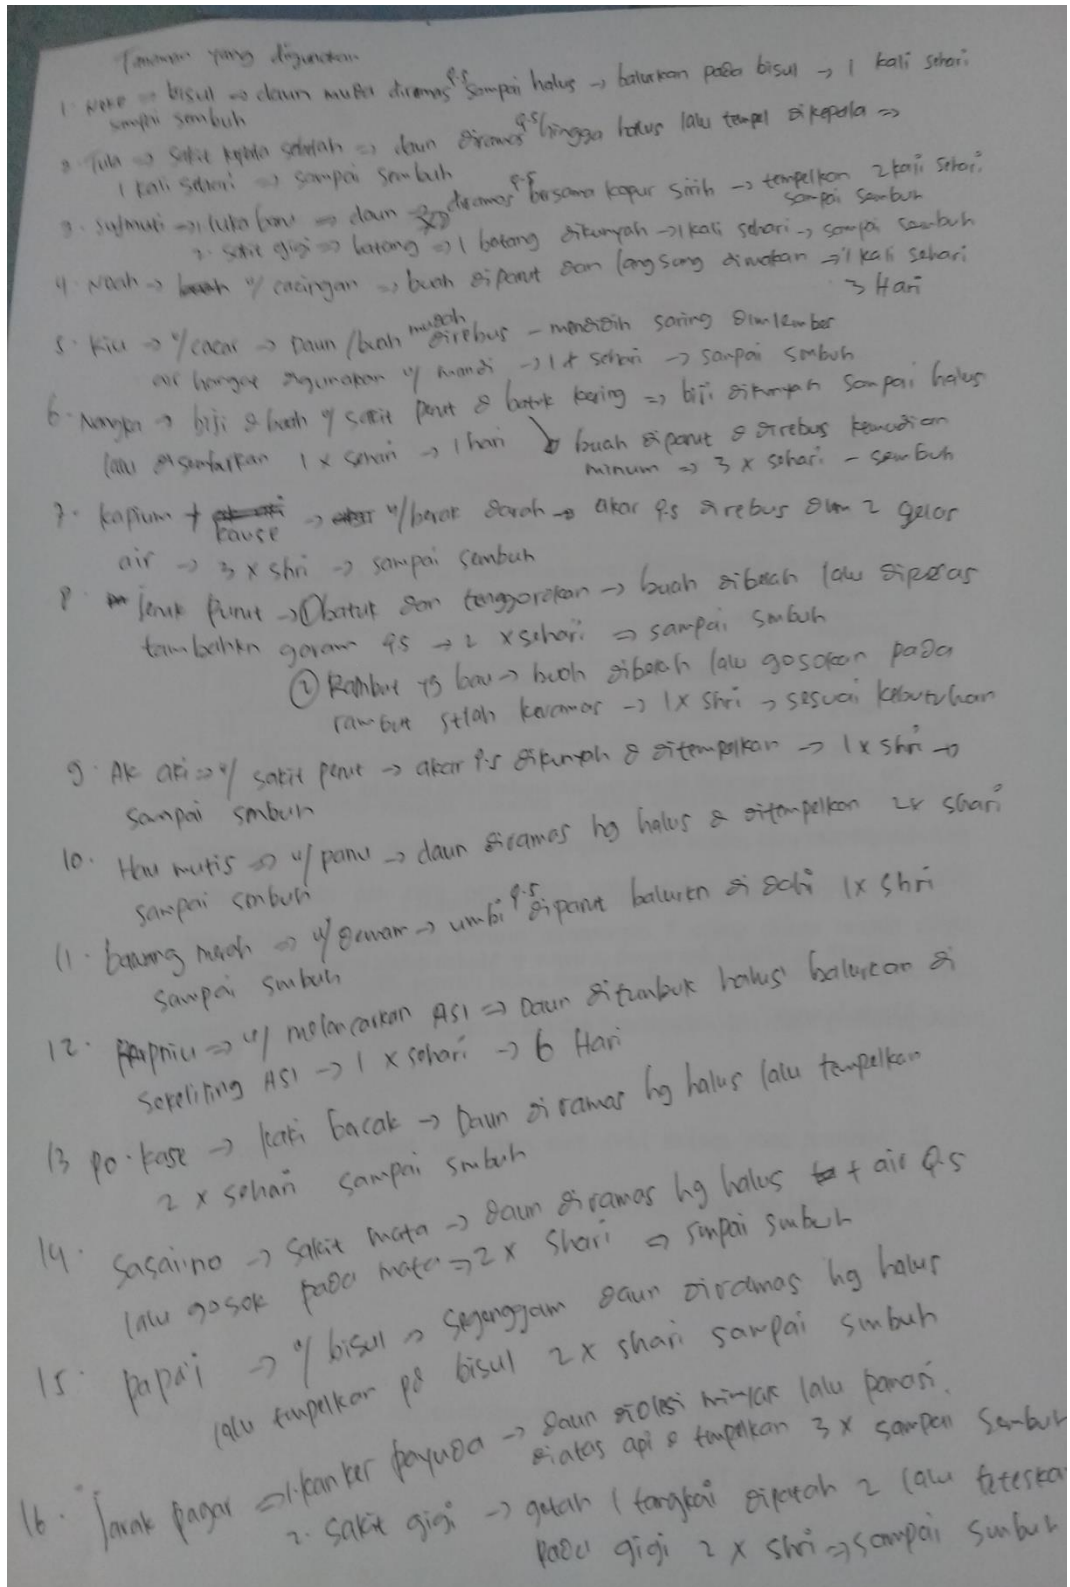 Tanaman yang digunakan
1. Neke → bisul → daun muda diremas q.s sampai halus → balurkan pada bisul → 1 kali sehari
sampai sembuh
2. Tula → sakit kepala sebelah → daun diramas q.s hingga halus lalu tempel di kepala →
1 kali sehari → sampai sembuh
3. sufmuti → 1. luka baru → daun diramas q.s bersama kapur sirih → tempelkan 2 kali sehari
sampai sembuh
2. sakit gigi → batang → 1 batang dikunyah → 1 kali sehari → sampai sembuh
4. Noah → u/ cacingan → buah diparut dan langsung dimakan → 1 kali sehari
3 Hari
5. Kiu → u/ cacar → Daun / buah mudah direbus - mendidih saring dlm ember
air hangat digunakan u/ mandi → 1 x sehari → sampai smbuh
6. Nangka → biji & buah u/ sakit perut & batuk kering → biji dikunyah sampai halus
lalu disemburkan 1 x sehari → 1 hari ↘ buah diparut & direbus kemudian
minum → 3 x sehari - sembuh
7. kapium + kause → u/ berak darah → akar q.s direbus dlm 2 gelas
air → 3 x shri → sampai sembuh
8. jeruk purut → ① batuk dan tenggorokan → buah dibelah lalu diperas
tambahkn garam q.s → 2 x sehari → sampai smbuh
② Rambut yg bau → buah dibelah lalu gosokan pada
rambut stlah keramas → 1x shri → sesuai kebutuhan
9. Ak aki → u/ sakit perut → akar q.s dikunyah & ditempelkan → 1 x shri →
sampai smbuh
10. Hau mutis → u/ panu → daun diramas hg halus & ditempelkan 2x shari
sampai smbuh
11. bawang merah → u/ demam → umbi q.s diparut balurkn di dahi 1x shri
sampai smbuh
12. → u/ melancarkan ASI → Daun ditumbuk halus balurkan di
sekeliling ASI → 1 x sehari → 6 Hari
13 po. kase → kaki bacak → Daun diramas hg halus lalu tempelkan
2 x sehari sampai smbuh
14. Sasaiino → sakit mata → daun diramas hg halus + air q.s
lalu gosok pada mata → 2 x shari → smpai smbuh
15. papa'i → u/ bisul → segenggam daun diramas hg halus
lalu tmpelkan pd bisul 2 x shari sampai smbuh
16. Jarak pagar → 1. kanker payuda → daun diolesi minyak lalu panasi
diatas api & tmpelkan 3 x sampai sembuh
2. sakit gigi → getah 1 tangkai dipatah 2 lalu teteska
pada gigi 2 x shri → sampai smbuh